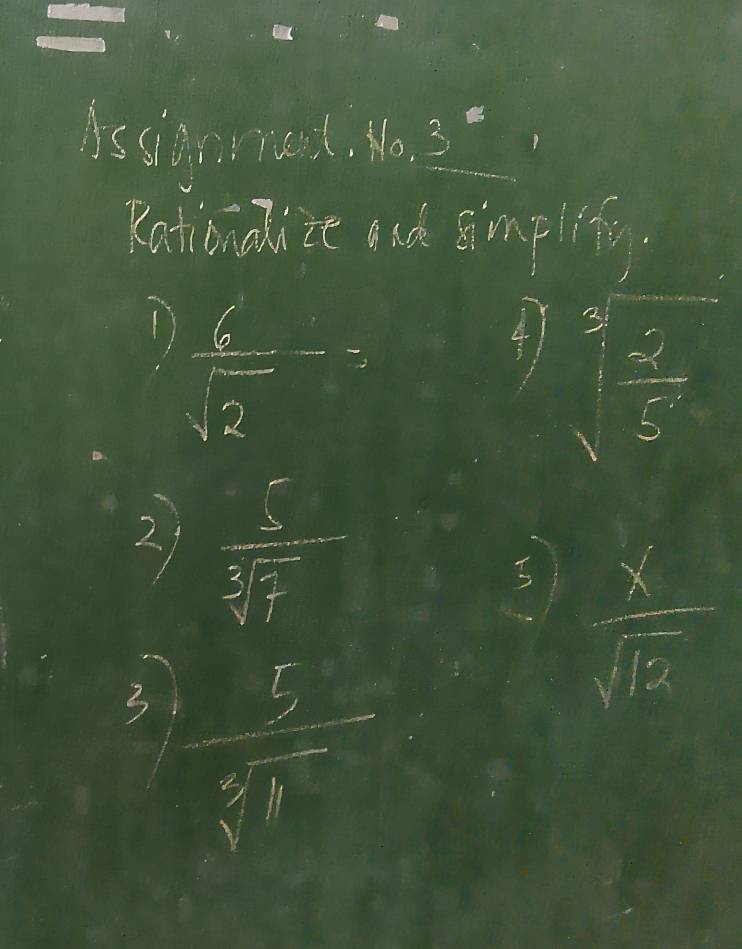 Assignment. No. 3
Rationalize and simplify.
1) 6/√2 =
2) 5/∛7
3) 5/∛11
4) ∛(2/5)
5) x/√12